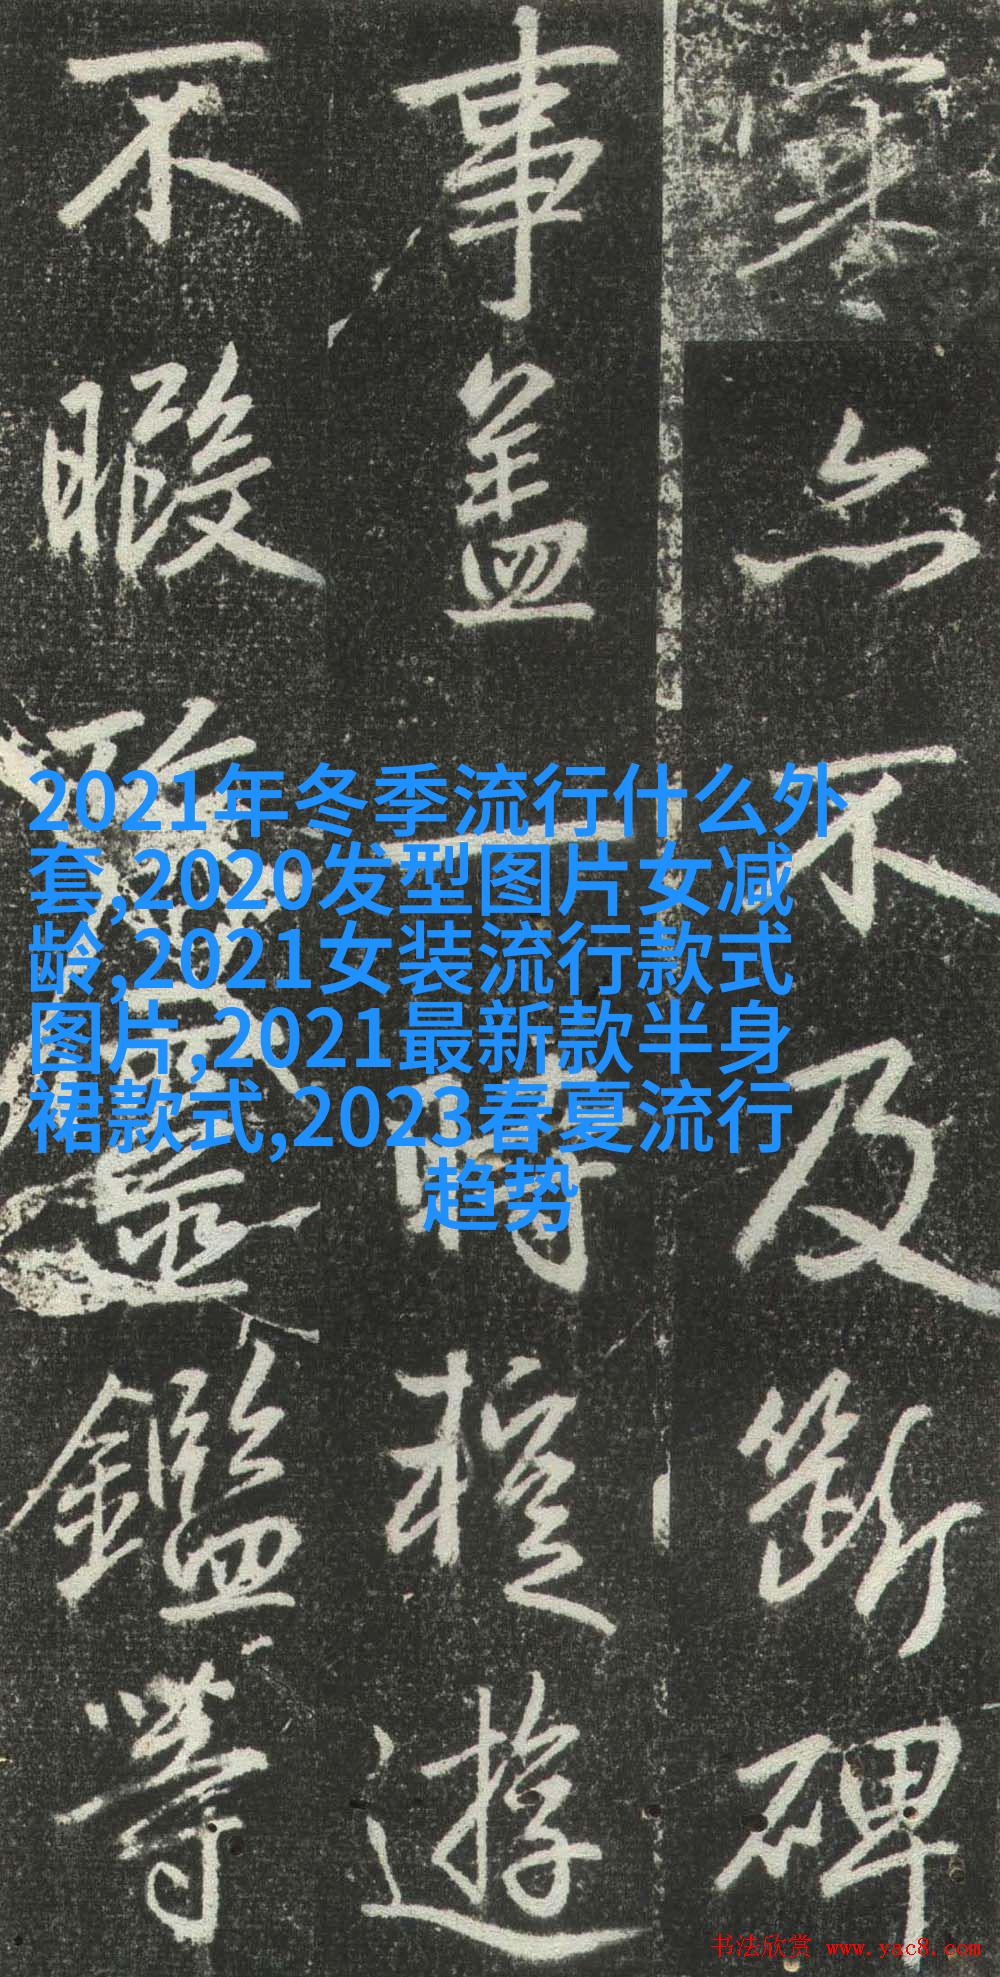 寒亦不及斷碑
事蓋一時權遊
不暇
鑑等
2021年冬季流行什么外
套,2020发型图片女减
龄,2021女装流行款式
图片,2021最新款半身
裙款式,2023春夏流行
趋势
书法欣赏 www.yac8.com